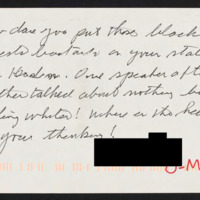 dare you put those black
bastards on your stat
One speaker aft
talked about nothing b
ing whites! Where in the he
your thinking!